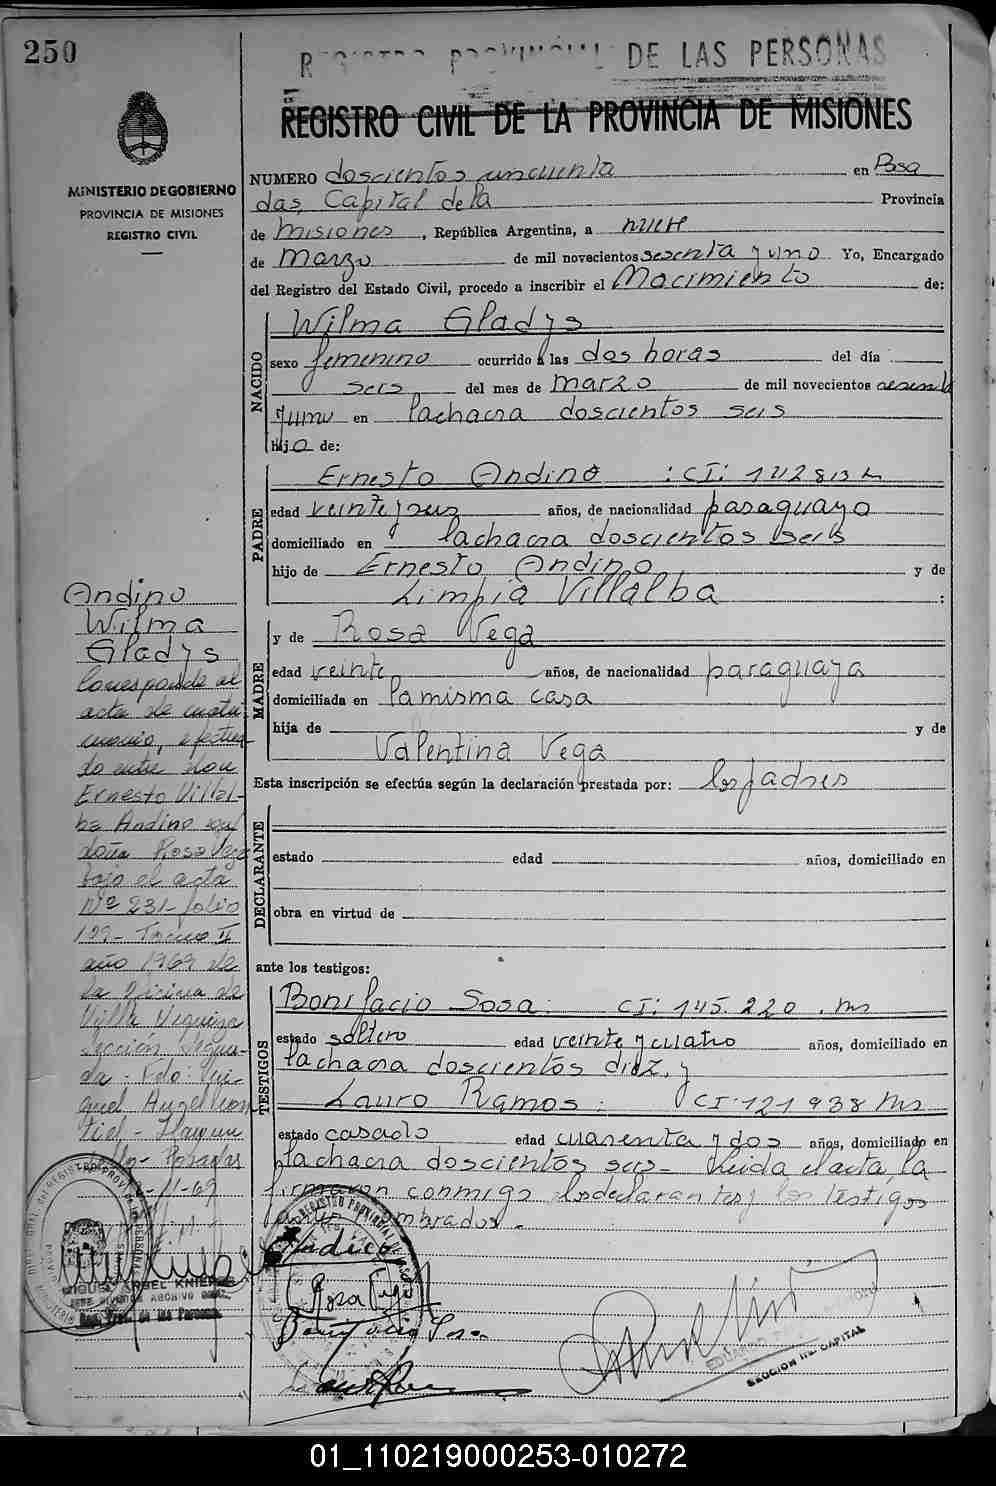 250
REGISTRO PROVINCIAL DE LAS PERSONAS
REGISTRO CIVIL DE LA PROVINCIA DE MISIONES
MINISTERIO DE GOBIERNO
PROVINCIA DE MISIONES
REGISTRO CIVIL
NUMERO doscientos cincuenta en Posa
das, Capital de la Provincia
de Misiones, República Argentina, a nueve
de Marzo de mil novecientos sesenta y uno Yo, Encargado
del Registro del Estado Civil, procedo a inscribir el Nacimiento de:
NACIDO
Wilma Gladys
sexo femenino ocurrido a las dos horas del día
seis del mes de marzo de mil novecientos sesenta
y uno en la chacra doscientos seis
hija de:
PADRE
Ernesto Andino : CI: 142813 M
edad veinte y seis años, de nacionalidad paraguayo
domiciliado en la chacra doscientos seis
hijo de Ernesto Andino y de
Limpia Villalba :
MADRE
y de Rosa Vega
edad veinte años, de nacionalidad paraguaya
domiciliada en la misma casa
hija de y de
Valentina Vega
Esta inscripción se efectúa según la declaración prestada por: los padres
DECLARANTE
estado edad años, domiciliado en
obra en virtud de
ante los testigos:
TESTIGOS
Bonifacio Sosa: CI: 145.220. Ms
estado soltero edad veinte y cuatro años, domiciliado en
la chacra doscientos diez, y
Lauro Ramos: CI: 121938 Ms
estado casado edad cuarenta y dos años, domiciliado en
la chacra doscientos seis- Leida el acta, la
firmaron conmigo los declarantes y los testigos
nombrados.-
Andino
Rosa Vega
Bonifacio Sosa
Andino
Wilma
Gladys
Corresponde al
acta de matri
monio, efectua
do entre don
Ernesto Villal-
ba Andino con
doña Rosa Vega
bajo el acta
Nº 231- folio
199- Tomo II
año 1969 de
la oficina de
Villa Urquiza
Sección Segun-
da- Fdo: Mi-
guel Angel
Posadas
11-69
MIGUEL ANGEL KNIE
JEFE DIVISION ARCHIVO GRAL.
Reg. Prov. de las Personas
SECCION CAPITAL
01_110219000253-010272